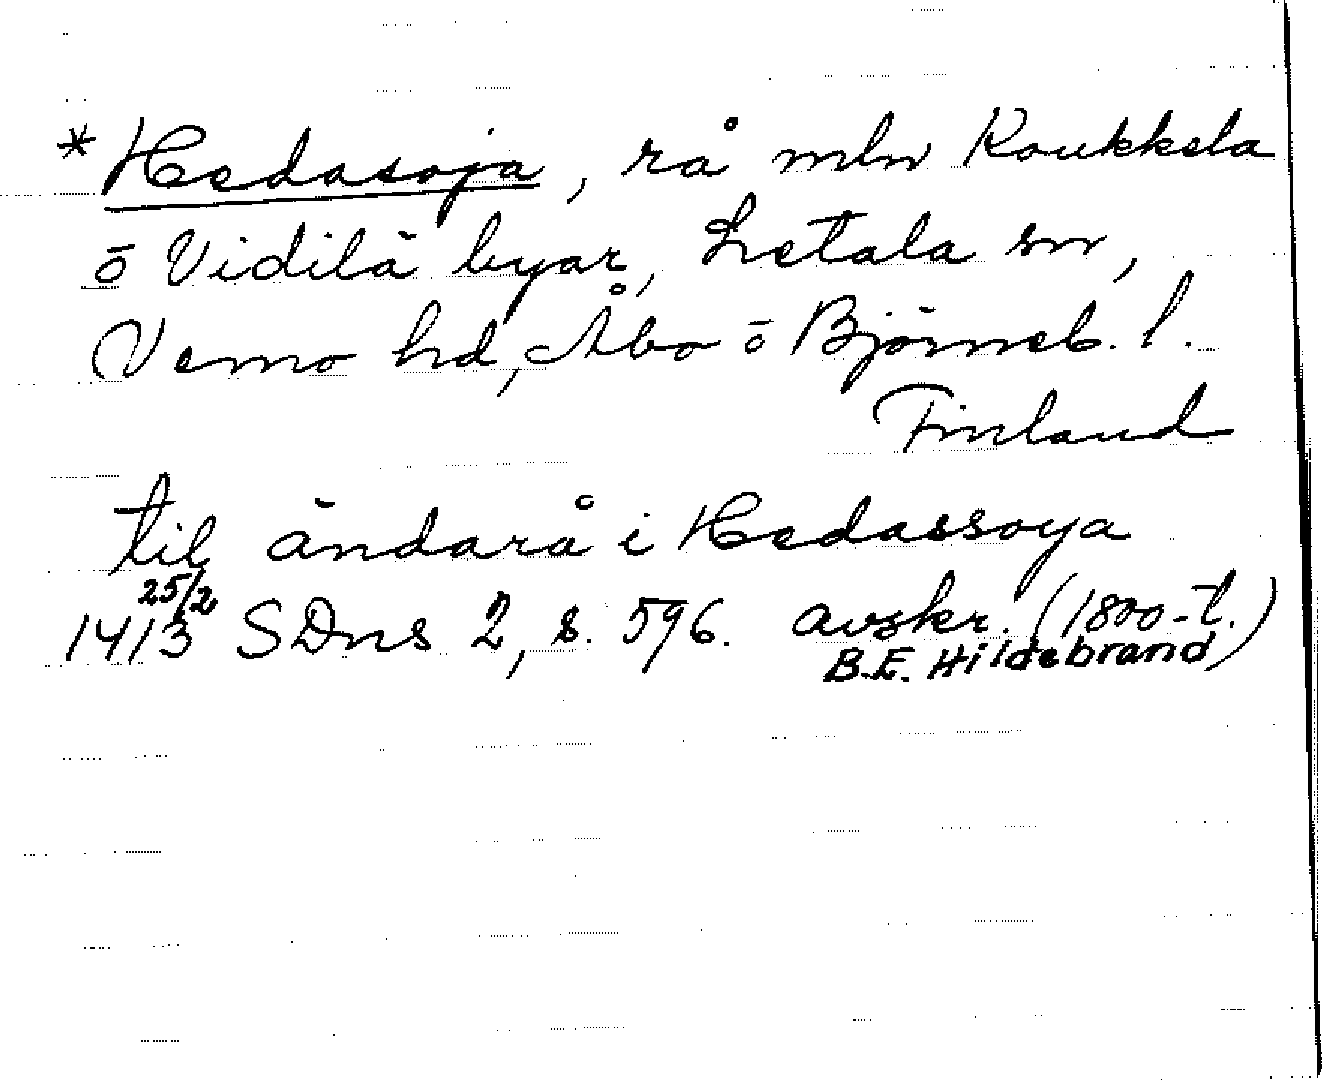 * Hedasoja, rå mln Koukkela
ō Vidilä byar, Letala sn,
Vemo hd, Åbo ō Björneb. l.
Finland
til ändarå i Hedassoya
25/2
1413 SDns 2, s. 596. avskr. (1800-t.)
B.E. Hildebrand)